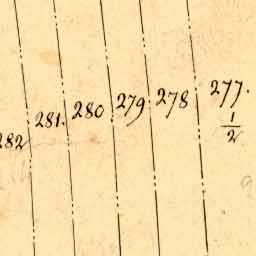 282 281. 280 279 278 277.
1/2